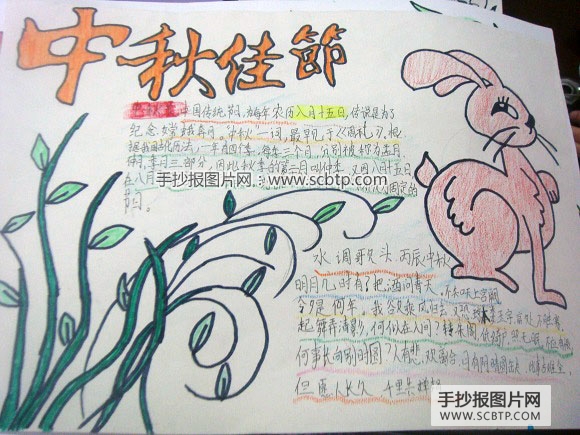 中秋佳節
中秋节 中国传统节日,为每年农历八月十五日,传说是为了
纪念嫦娥奔月。"中秋"一词,最早见于《周礼》。根
据我国古代历法,一年有四季,每季三个月,分别被称为孟月、
仲月、季月三部分,因此秋季的第二月叫仲秋,又因八月十五日
在八月
固定的
节日。
手抄报图片网:www.scbtp.com
水调歌头 丙辰中秋
明月几时有?把酒问青天。不知天上宫阙
今夕是何年。我欲乘风归去,又恐琼楼玉宇高处不胜寒
起舞弄清影,何似在人间?转朱阁,低绮户,照无眠。
何事长向别时圆?人有悲欢离合,月有阴晴圆缺,
但愿人长久 千里共婵娟
手抄报图片网
WWW.SCBTP.COM